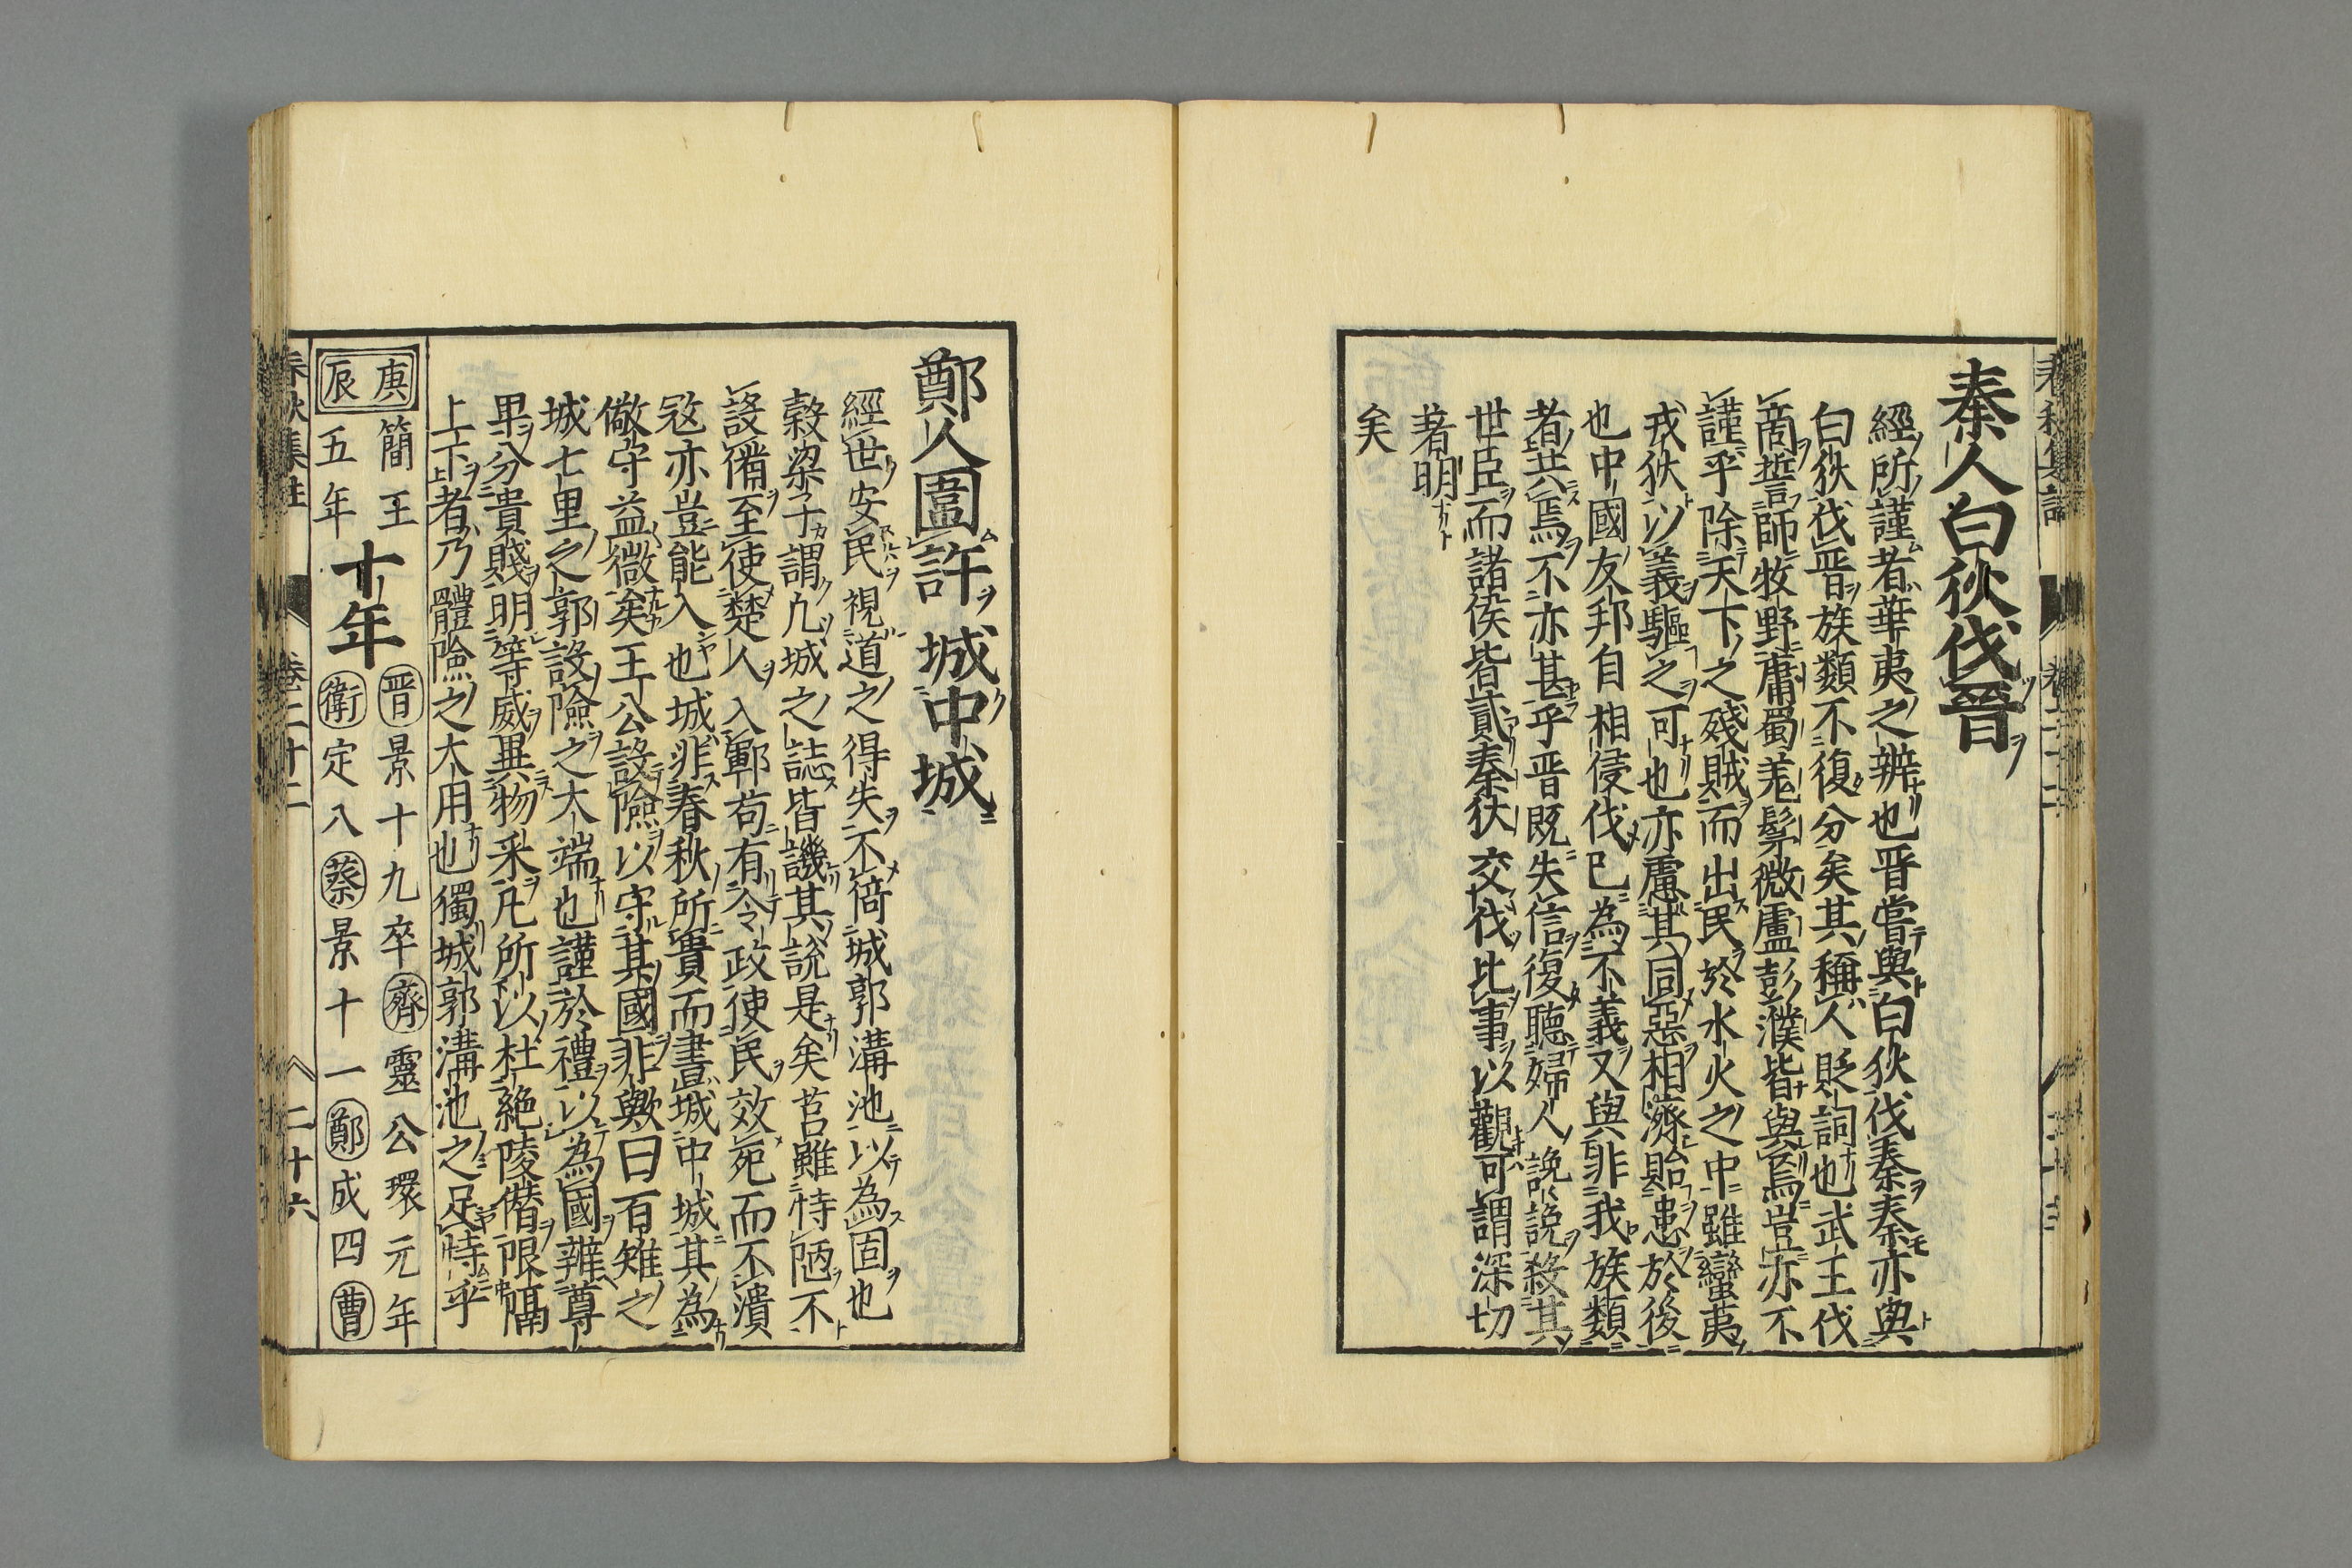 秦人白狄伐晉
經所謹者華夷之辨也晋嘗與白狄伐秦秦亦與
白狄伐晋族類不復分矣其稱人貶詞也武王伐
商誓師牧野庸蜀羌髳微盧彭濮皆與焉豈亦不
謹乎除天下之殘賊而出民於水火之中雖蠻夷
戎狄以義驅之可也亦慮其同惡相濟貽患於後
也中國友邦自相侵伐已為不義又與非我族類
者共焉不亦甚乎晋既失信復聽婦人説説殺其
世臣而諸侯皆貳秦狄交伐比事以觀可謂深切
著明
矣
鄭人圍許城中城
經世安民視道之得失不倚城郭溝池以為固也
穀梁子謂凢城之誌皆譏其説是矣莒雖恃陋不
設備至使楚人入鄆苟有令政使民效死而不潰
宼亦豈能入也城非春秋所貴而書城中城其為
儆守益微矣王公設險以守其國非歟曰百雉之
城七里之郭設險之大端也謹於禮以為國辨尊
卑分貴賤明等威異物采凢所以杜絶陵僣限隔
上下者乃體險之大用也獨城郭溝池之足恃乎
庚辰
簡王五年
十年
晋景十九卒齊靈公環元年
衛定八蔡景十一鄭成四曹
春秋集註
卷二十二
二十六